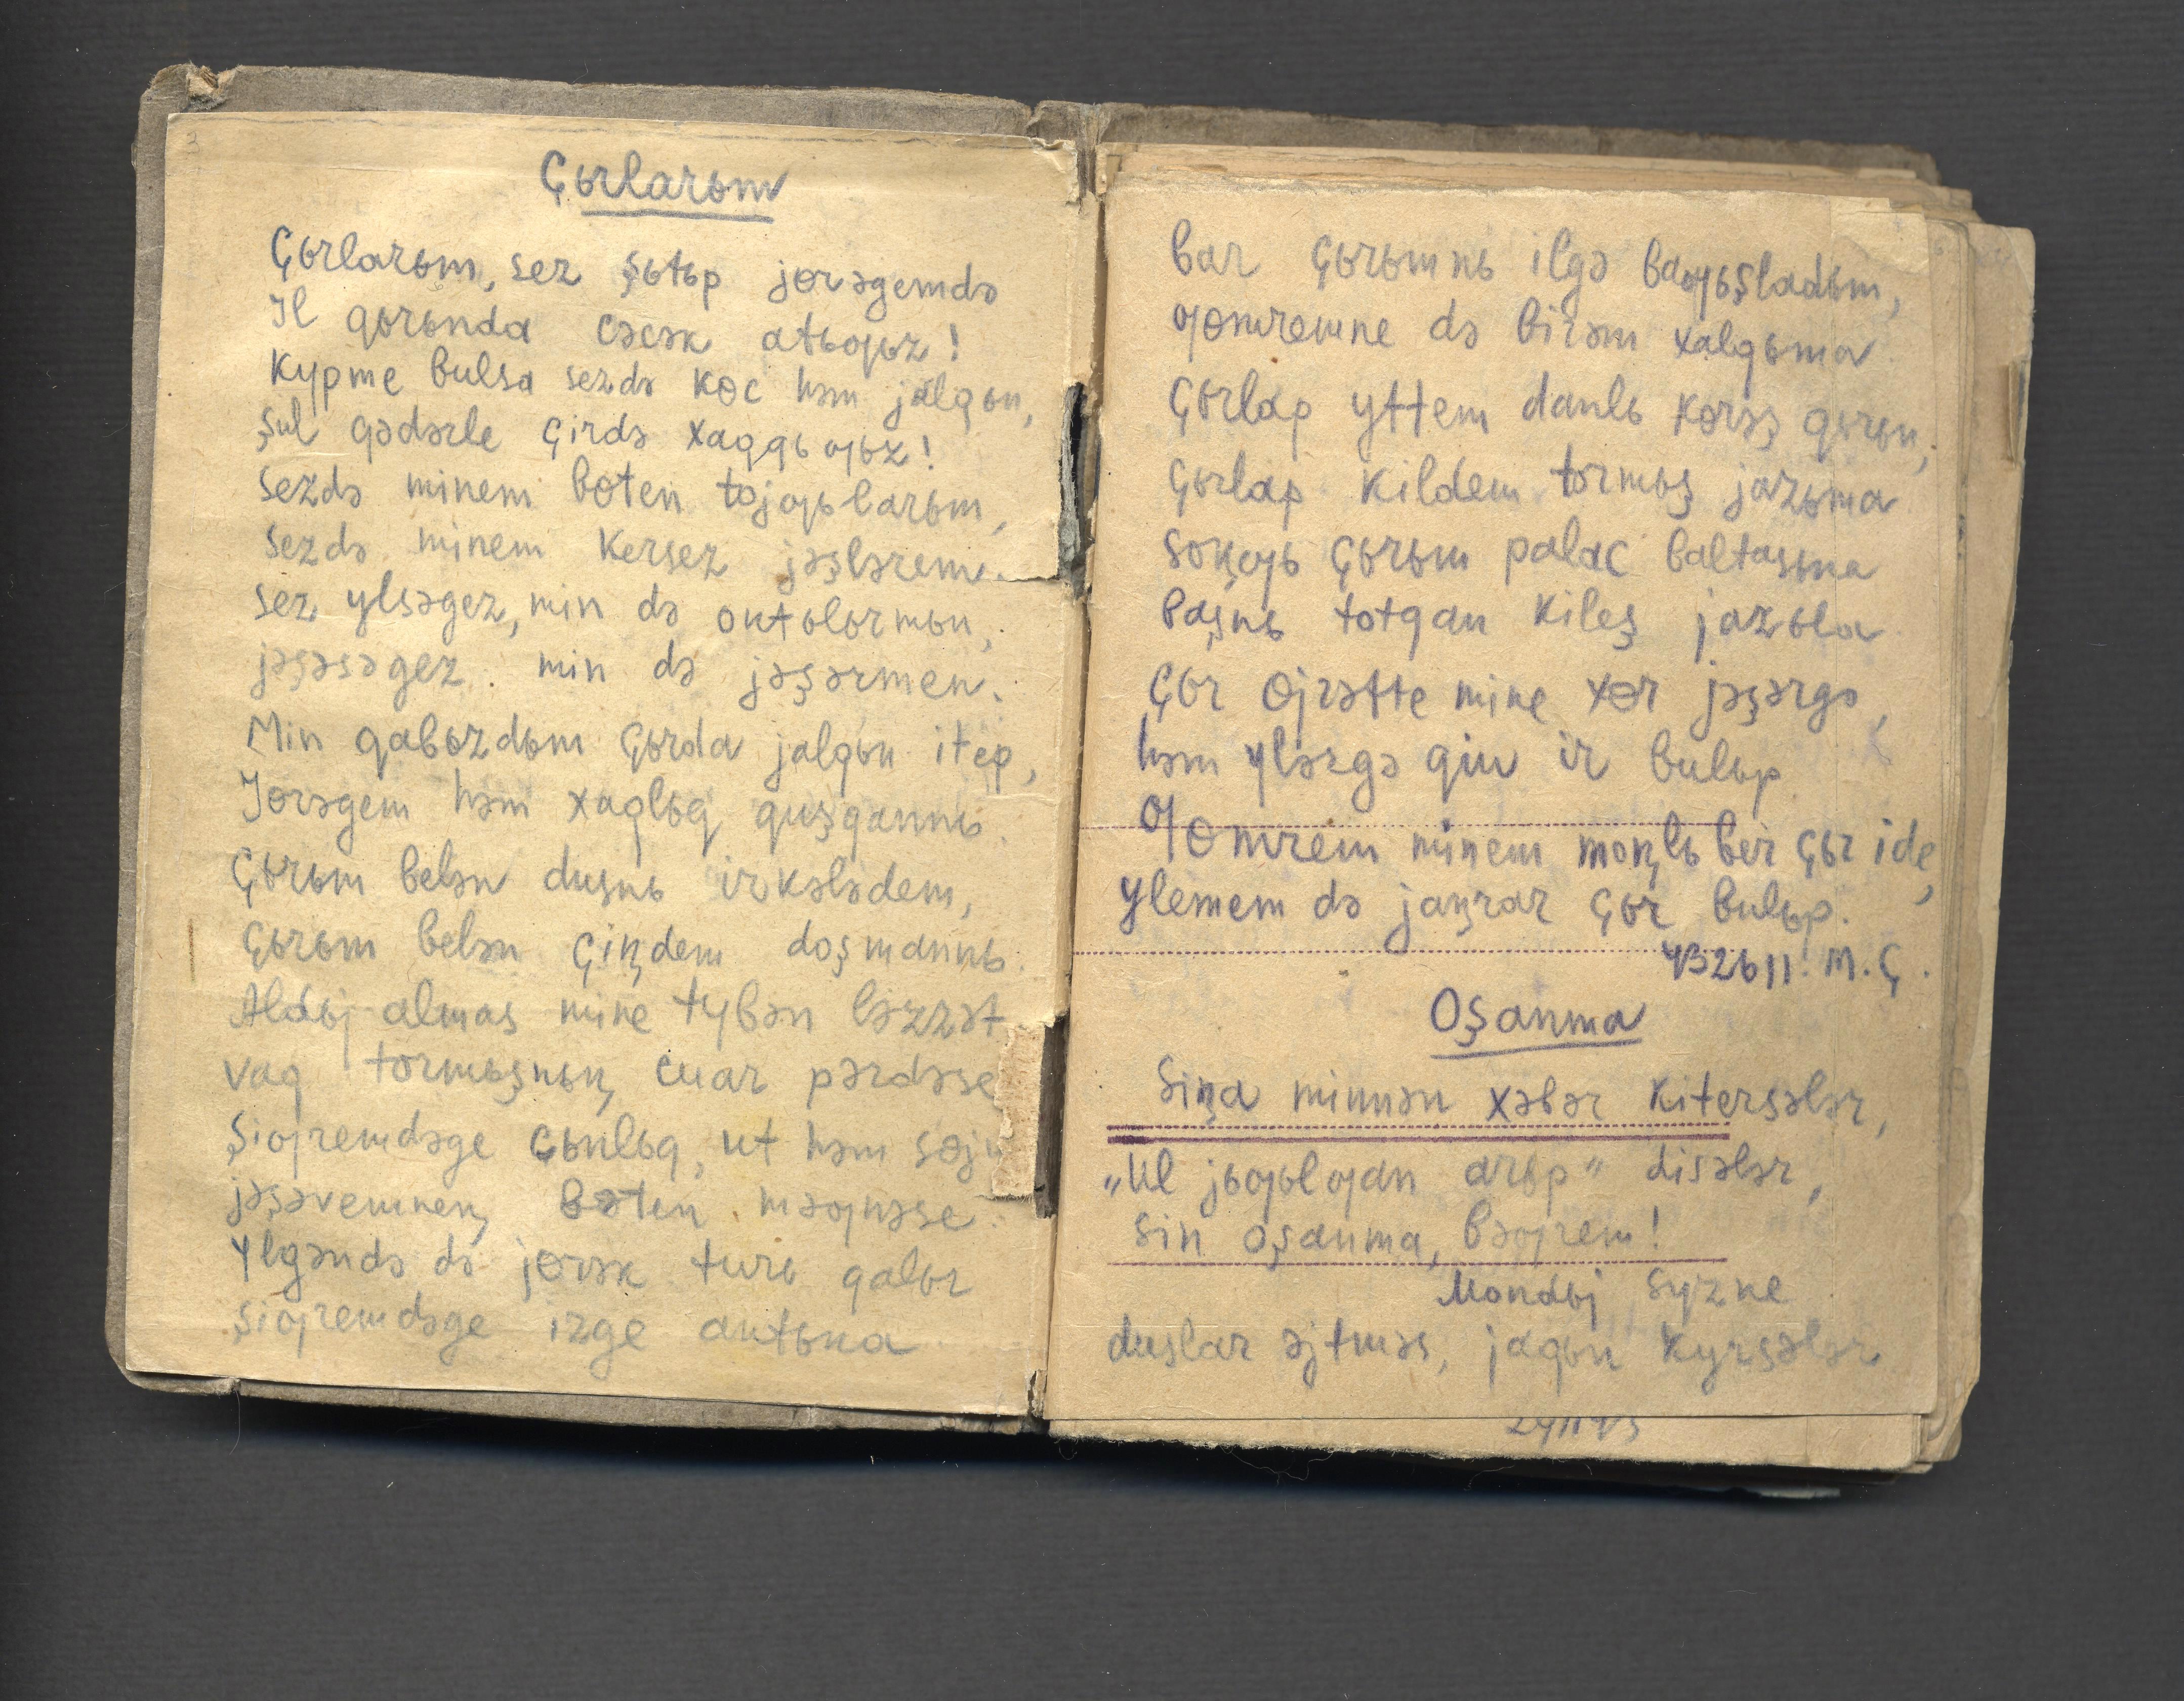 3
Çьrlarьm
Çьrlarьm, sez şьtьp jɵrəgemdə
Il qьrьnda cəcək atьƣьz!
Kypme bulsa sezdə kɵc həm jalqьn,
Şul qədərle çirdə xaqqьƣьz!
Sezdə minem bɵten tojƣьlarьm,
Sezdə minem kersez jəşlərem.
Sez ylsəgez, min də onьtьlьrmьn,
Jəşəsəgez. min də jəşərmen.
Min qabьzdьm çьrda jalqьn itep,
Jɵrəgem həm xaqlьq quşqannь.
Çьrьm belən dusnь irkələdem,
Çьrьm belən çiꞑdem doşmannь.
Aldьj almas mine tybən ləzzət
Vaq tormьşnьꞑ cuar pərdəse
Şiƣremdəge çьnlьq, ut həm sɵju
Jəşəvemneꞑ bɵten məƣnəse.
Ylgəndə də jɵrək turь qalьr
Şiƣremdəge izge antьna
Bar çьrьmnь ilgə baƣьşladьm,
Ƣomremne də birəm xalqьma
Çьrlap yttem danlь kɵrəş qьrьn,
Çьrlap kildem tormьş jazьma
Soꞑƣь çьrьm palac baltasьna
Başnь totqan kileş jazьla
Çьr ɵjrətte mine xɵr jəşərgə,
Həm ylərgə qiu ir bulьp.
Ƣomrem minem moꞑlь ber çьr ide,
Ylemem də jaꞑrar çьr bulьp.
43 26 11. M. Ç.
Oşanma
Siꞑa minnən xəbər kitersələr,
„Ul jьƣьlƣan arьp“ disələr,
Sin oşanma, bəƣrem!
Mondьj syzne
duslar əjtməs, jaqьn kyrsələr